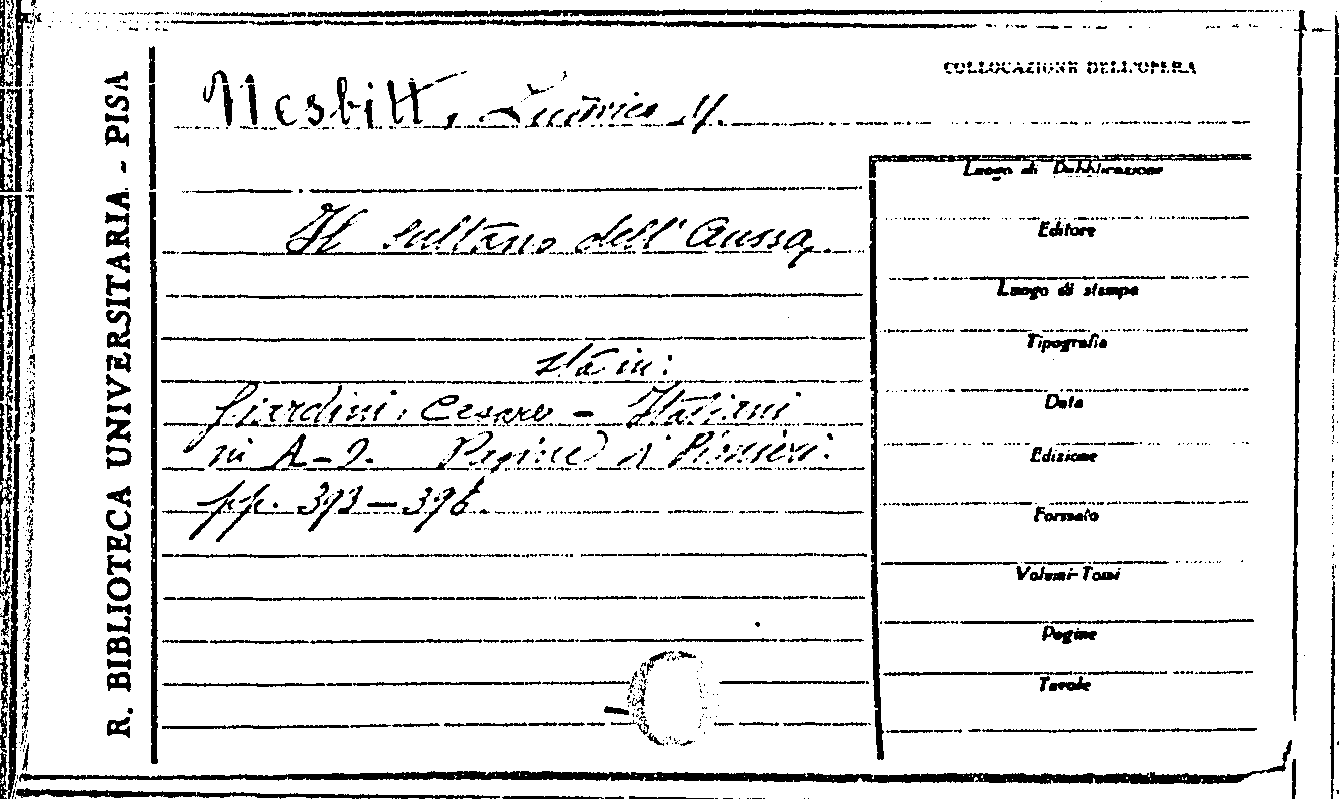 R. BIBLIOTECA UNIVERSITARIA - PISA
COLLOCAZIONE DELL'OPERA
Nesbitt, Ludovico M.
Il sultano dell'Aussa.
sta in:
Giardini, Cesare - Italiani
in A-O. Pagine di Pionieri.
pp. 393-398.
Luogo di Pubblicazione
Editore
Luogo di stampa
Tipografia
Data
Edizione
Formato
Volumi-Tomi
Pagine
Tavole